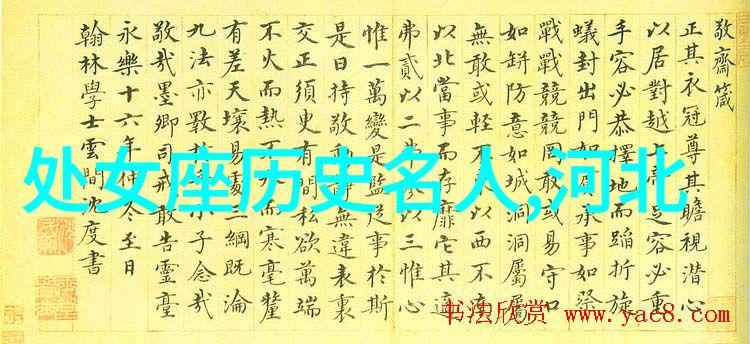 敬齋箴
正其衣冠尊其瞻視潛心
以居對越帝足容必重
手容必恭擇地而蹈折旋
蟻封出門如承事如祭
戰戰兢兢罔敢或易守口
如缾防意如城洞洞屬屬
無敢或輕不以西不
以北當事而存靡它其適
弗貳以二以三惟心
惟一萬變是監從事於斯
是日持敬動無違表裏
交正須臾有間私欲萬端
不火而熱不而寒毫釐
有差天壤易處三綱既淪
九法亦斁小子念哉
敬哉墨卿司戒敢告靈臺
永樂十六年仲冬至日
翰林學士雲間沈度書
处女座历史名人,河北
书法欣赏
www.yac8.com